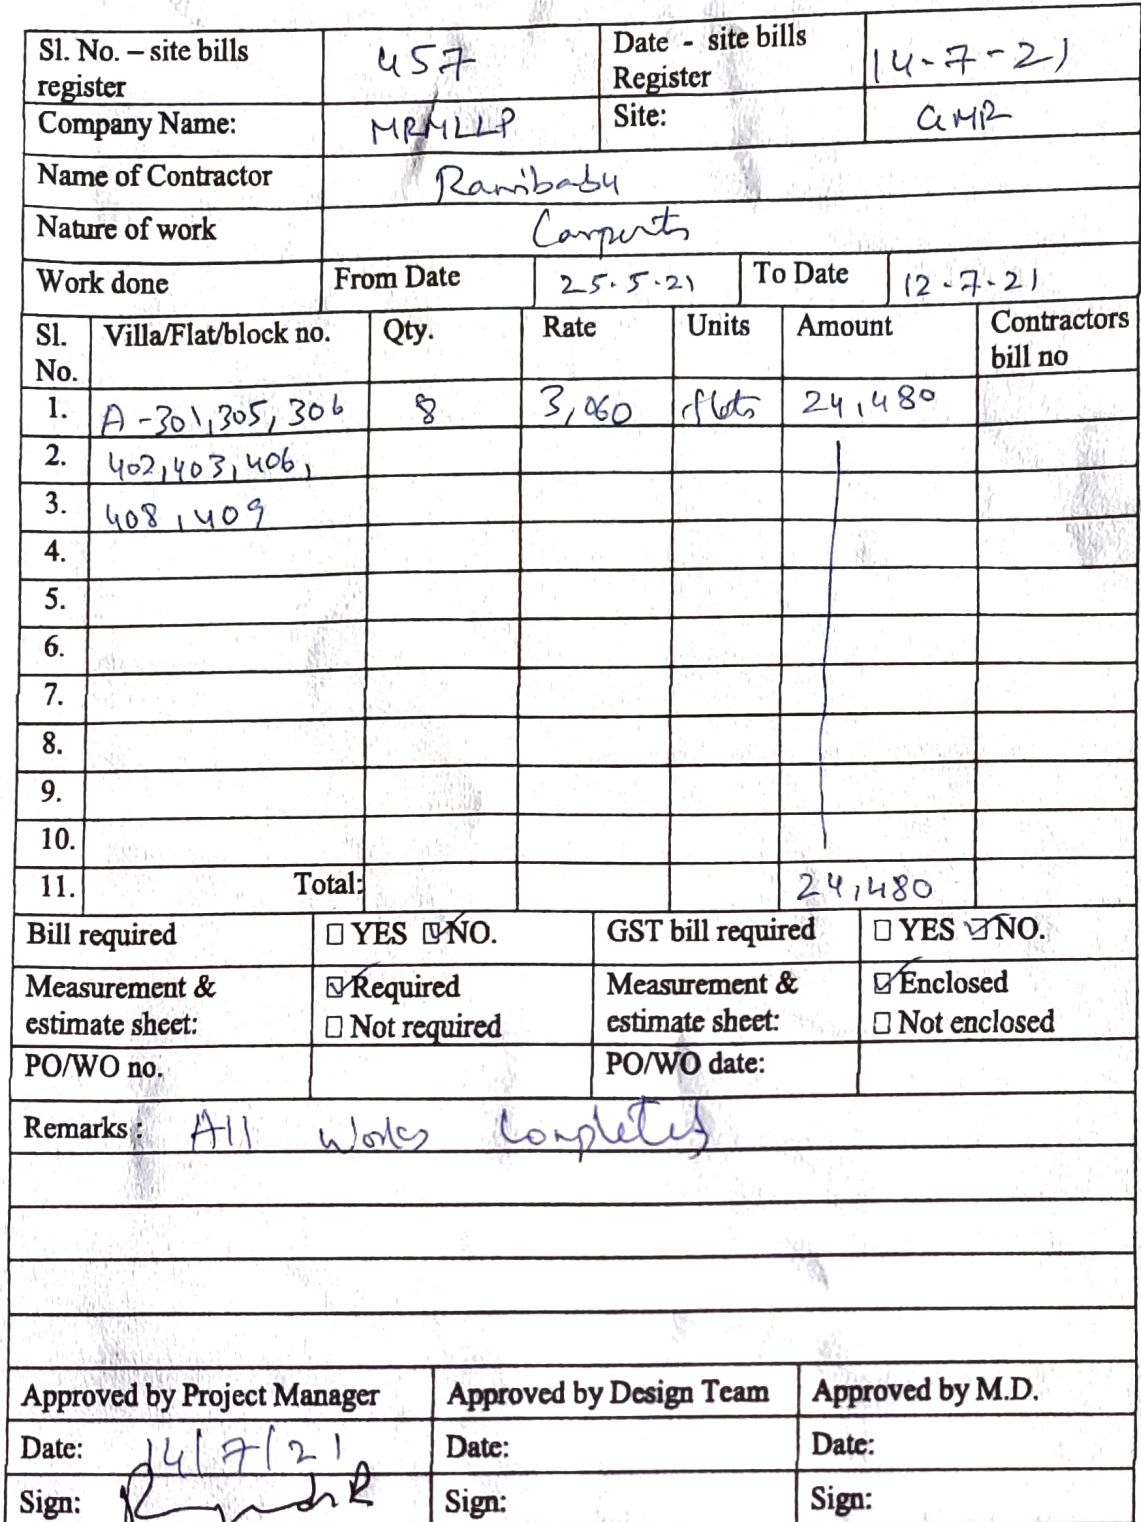 Sl. No. – site bills register 457 Date - site bills Register 14-7-21
Company Name: MRMLLP Site: GMR
Name of Contractor Rambabu
Nature of work
Work done From Date 25.5.21 To Date 12-7-21
Sl. No. Villa/Flat/block no. Qty. Rate Units Amount Contractors bill no
1. A-301,305,306 8 3,060 flats 24,480
2. 402,403,406,
3. 408,409
4.
5.
6.
7.
8.
9.
10.
11. Total: 24,480
Bill required ☐ YES ☑ NO. GST bill required ☐ YES ☑ NO.
Measurement & estimate sheet: ☑ Required ☐ Not required Measurement & estimate sheet: ☑ Enclosed ☐ Not enclosed
PO/WO no. PO/WO date:
Remarks: All works Completed
Approved by Project Manager Approved by Design Team Approved by M.D.
Date: 14/7/21 Date: Date:
Sign: Sign: Sign: